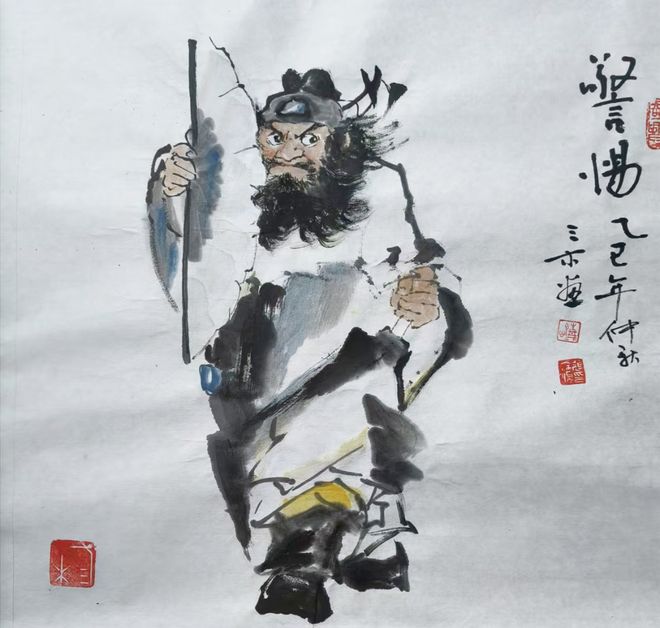 警惕
乙巳年仲秋
三木画